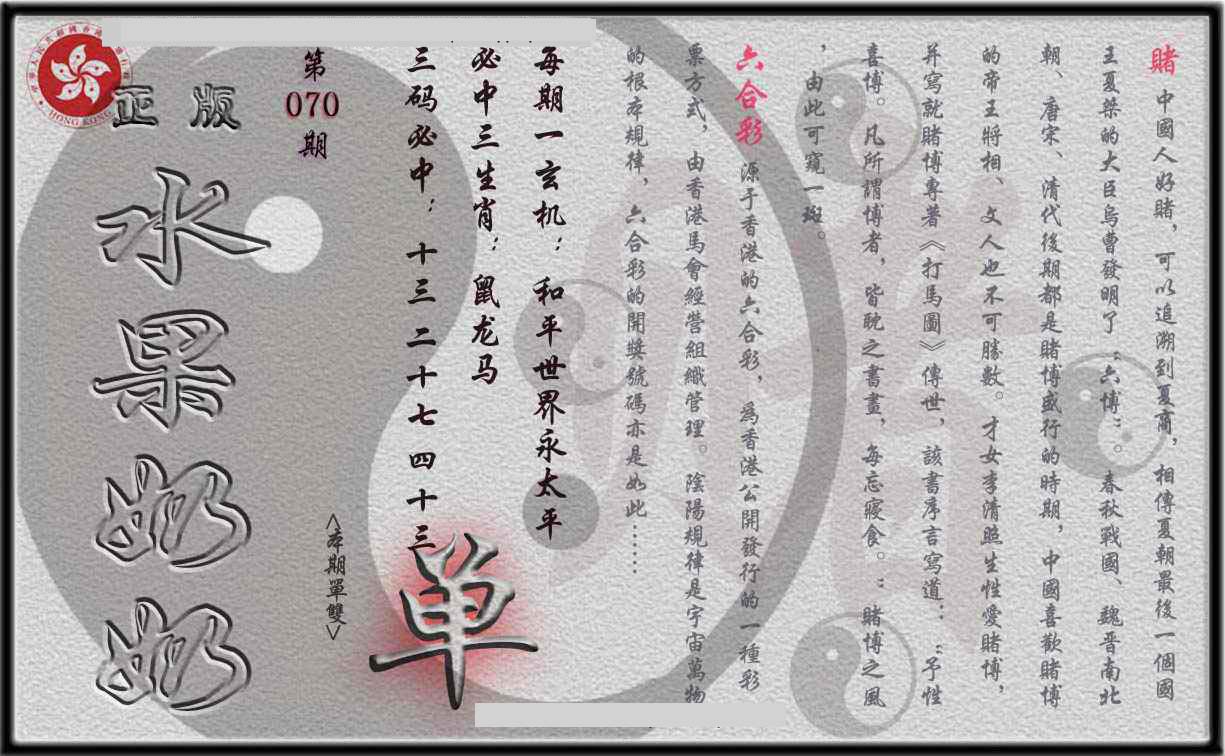 賭 中國人好賭，可以追溯到夏商，相傳夏朝最後一個國
王夏桀的大臣烏曹發明了“六博”春秋戰國、魏晋南北
朝、唐宋、清代後期都是賭博盛行的時期，中國喜歡賭博
的帝王將相、文人也不可勝數。才女李清照生性愛賭博，
并寫就賭博專著《打馬圖》傳世，該書序言寫道：“予性
喜博。凡所謂博者，皆耽之書畫，每忘寢食。”賭博之風
，由此可窺一斑。
六合彩 源于香港的六合彩，爲香港公開發行的一種彩
票方式，由香港馬會經營組織管理。陰陽規律是宇宙萬物
的根本規律，六合彩的開獎號碼亦是如此……
每期一玄机：和平世界永太平
必中三生肖：鼠龙马
三码必中：十三二十七四十三
第
070
期
<本期單雙>
单
正版
水果奶奶
HONG KONG